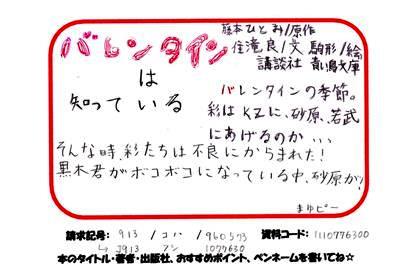 バレンタイン
は
知っている
藤本ひとみ/原作
住滝良/文 駒形/絵
講談社 青い鳥文庫
バレンタインの季節。
彩はKZに、砂原、若武
にあげるのか...
そんな時、彩たちは不良にからまれた!
黒木君がボコボコになっている中、砂原が?
まゆピー
請求記号: 913 / コハ / 960573 資料コード: 1110776300
↳ J913 フシ 1077630
本のタイトル・著者・出版社、おすすめポイント、ペンネームを書いてね☆